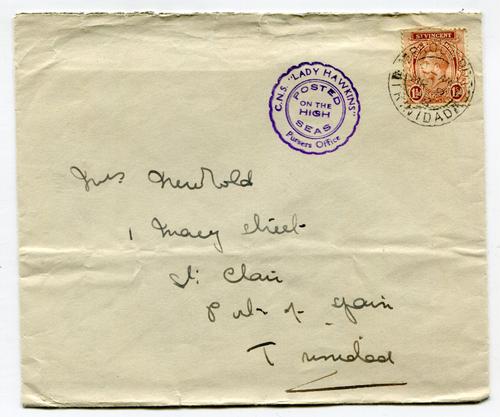 ST VINCENT
1½D 1½D
TRINIDAD
C.N.S. "LADY HAWKINS"
POSTED
ON THE
HIGH
SEAS
Pursers Office
Mrs Newbold
1 Mary Street
St Clair
Port of Spain
Trinidad